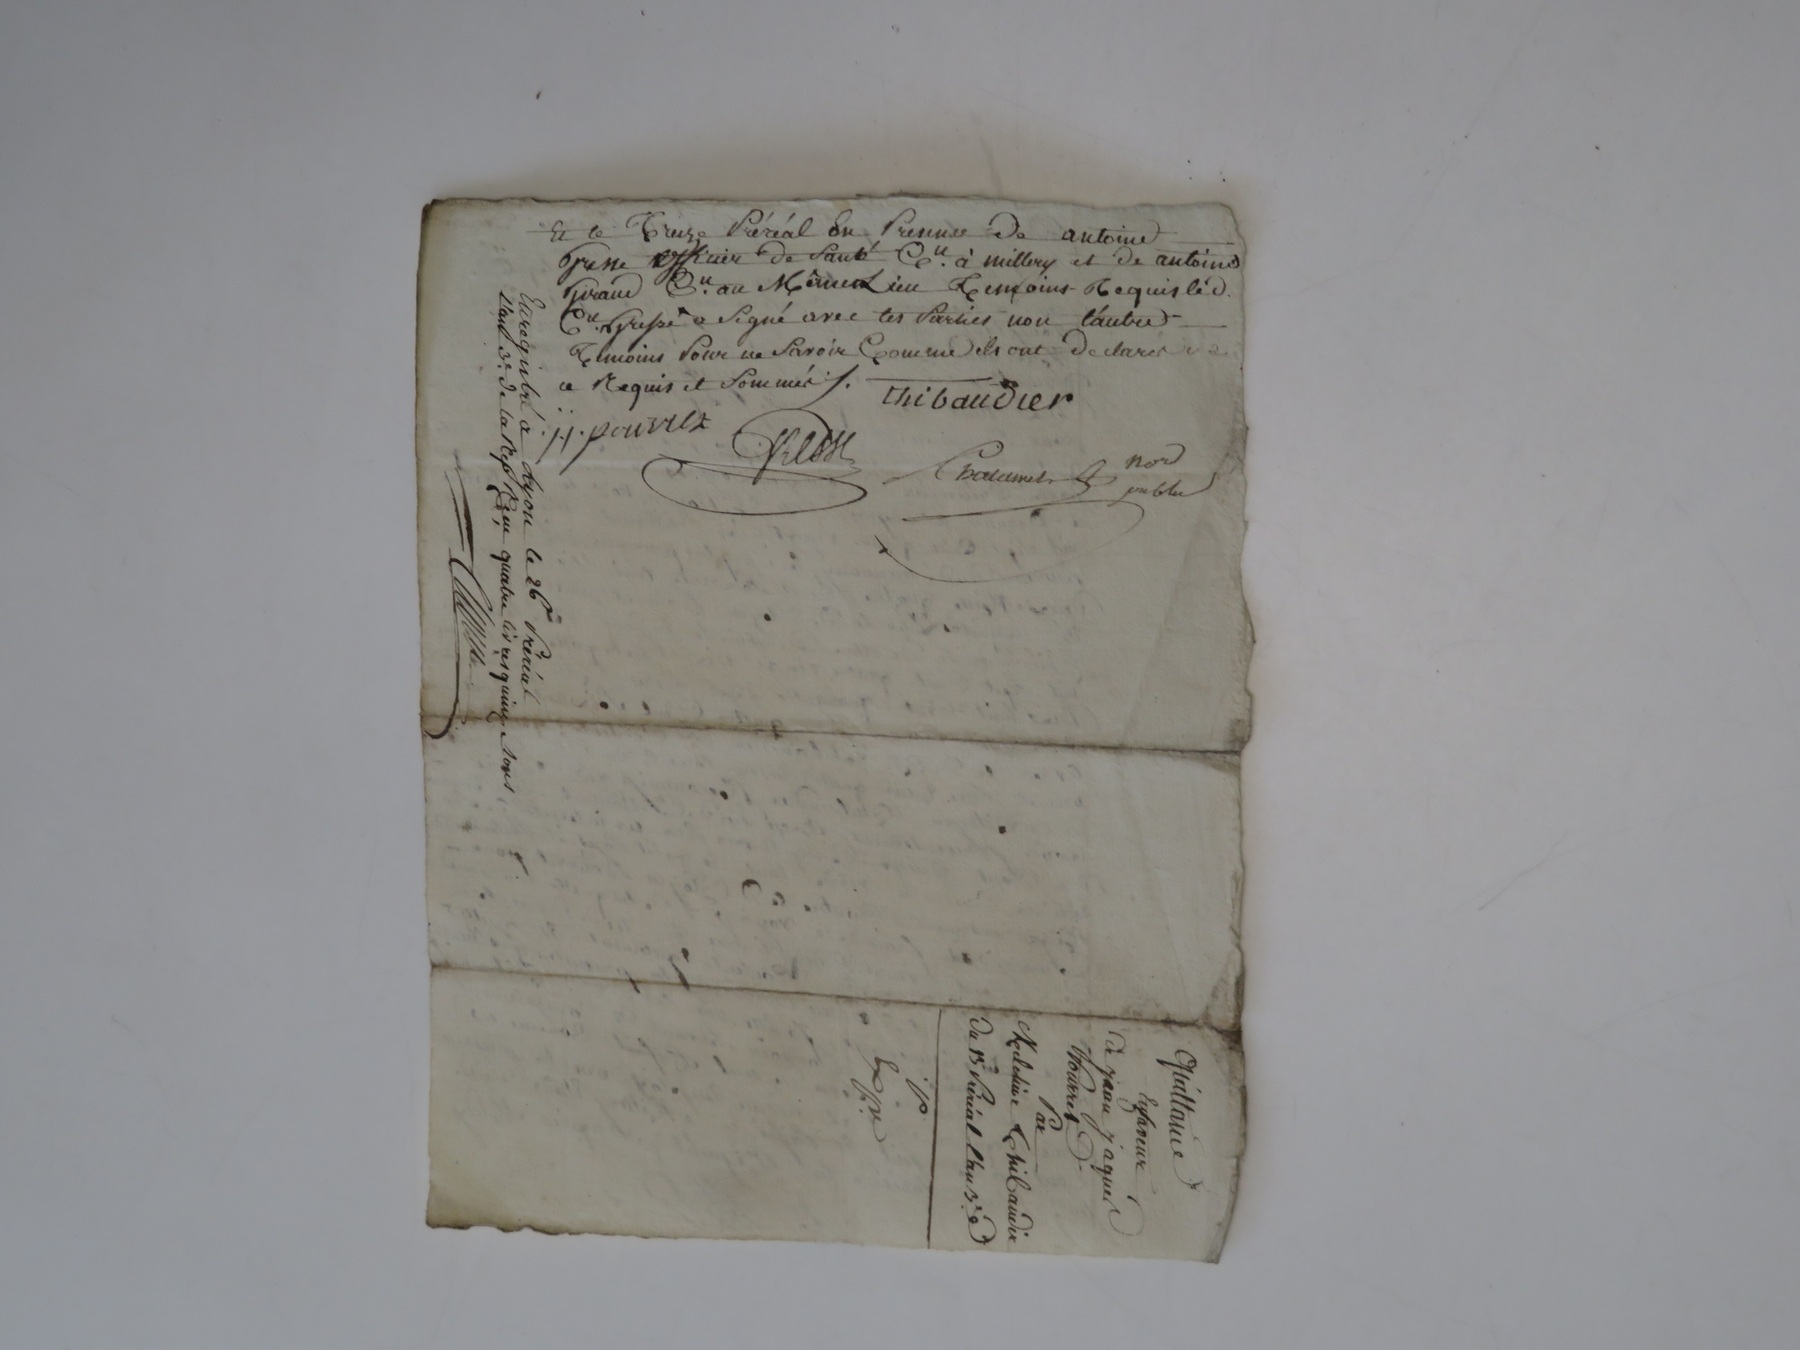 Et le Treze Préréal En Presence de antoine
Gresse officier de Santé C.en à millery et de antoine
Giraud C.en au Même Lieu Temoins Requis led.
C.en Gresse a Signé avec les Parties non l'autre
Temoins Pour ne Savoir Comme ils ont declaré
ce Requis et Sommés /.
Thibaudier
j.j. pourret
Gresse
Chalamel
not
public
Enregistré à Lyon le 26 Préréal
L'an 3e de la Rep. Reçu quatre livres quinze Sous
Quittance
En faveur
De jean jaques
Pourret
Par
Thibaudier
Du 13 Préréal L'an 3e
Exp.